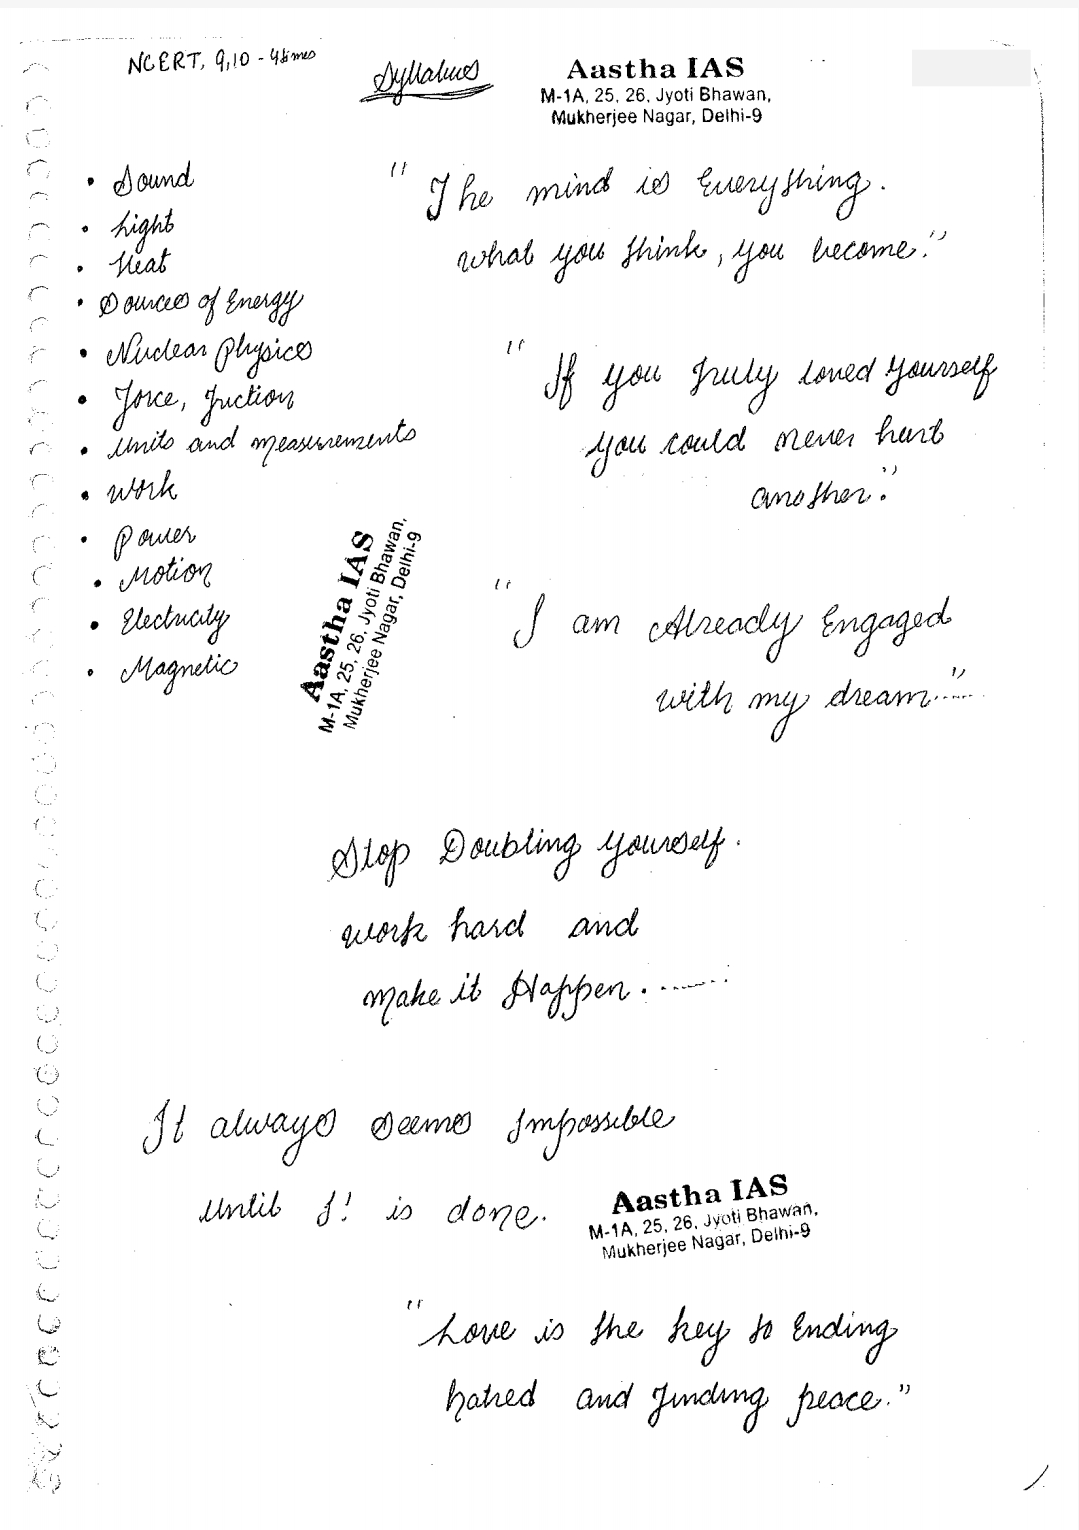 NCERT, 9,10 - 4times
Syllabus
Aastha IAS
M-1A, 25, 26, Jyoti Bhawan,
Mukherjee Nagar, Delhi-9
• Sound
• Light
• Heat
• Sources of Energy
• Nuclear Physics
• Force, Friction
• Units and measurements
• Work
• Power
• Motion
• Electricity
• Magnetic
"The mind is Everything.
what you think, you become."
"If you Truly loved yourself
you could never hurt
another."
Aastha IAS
M-1A, 25, 26, Jyoti Bhawan,
Mukherjee Nagar, Delhi-9
"I am Already Engaged
with my dream......"
Stop Doubting yourself.
work hard and
make it Happen.........
It always seems Impossible
until I! is done.
Aastha IAS
M-1A, 25, 26, Jyoti Bhawan,
Mukherjee Nagar, Delhi-9
"Love is the key to Ending
hatred and finding peace."